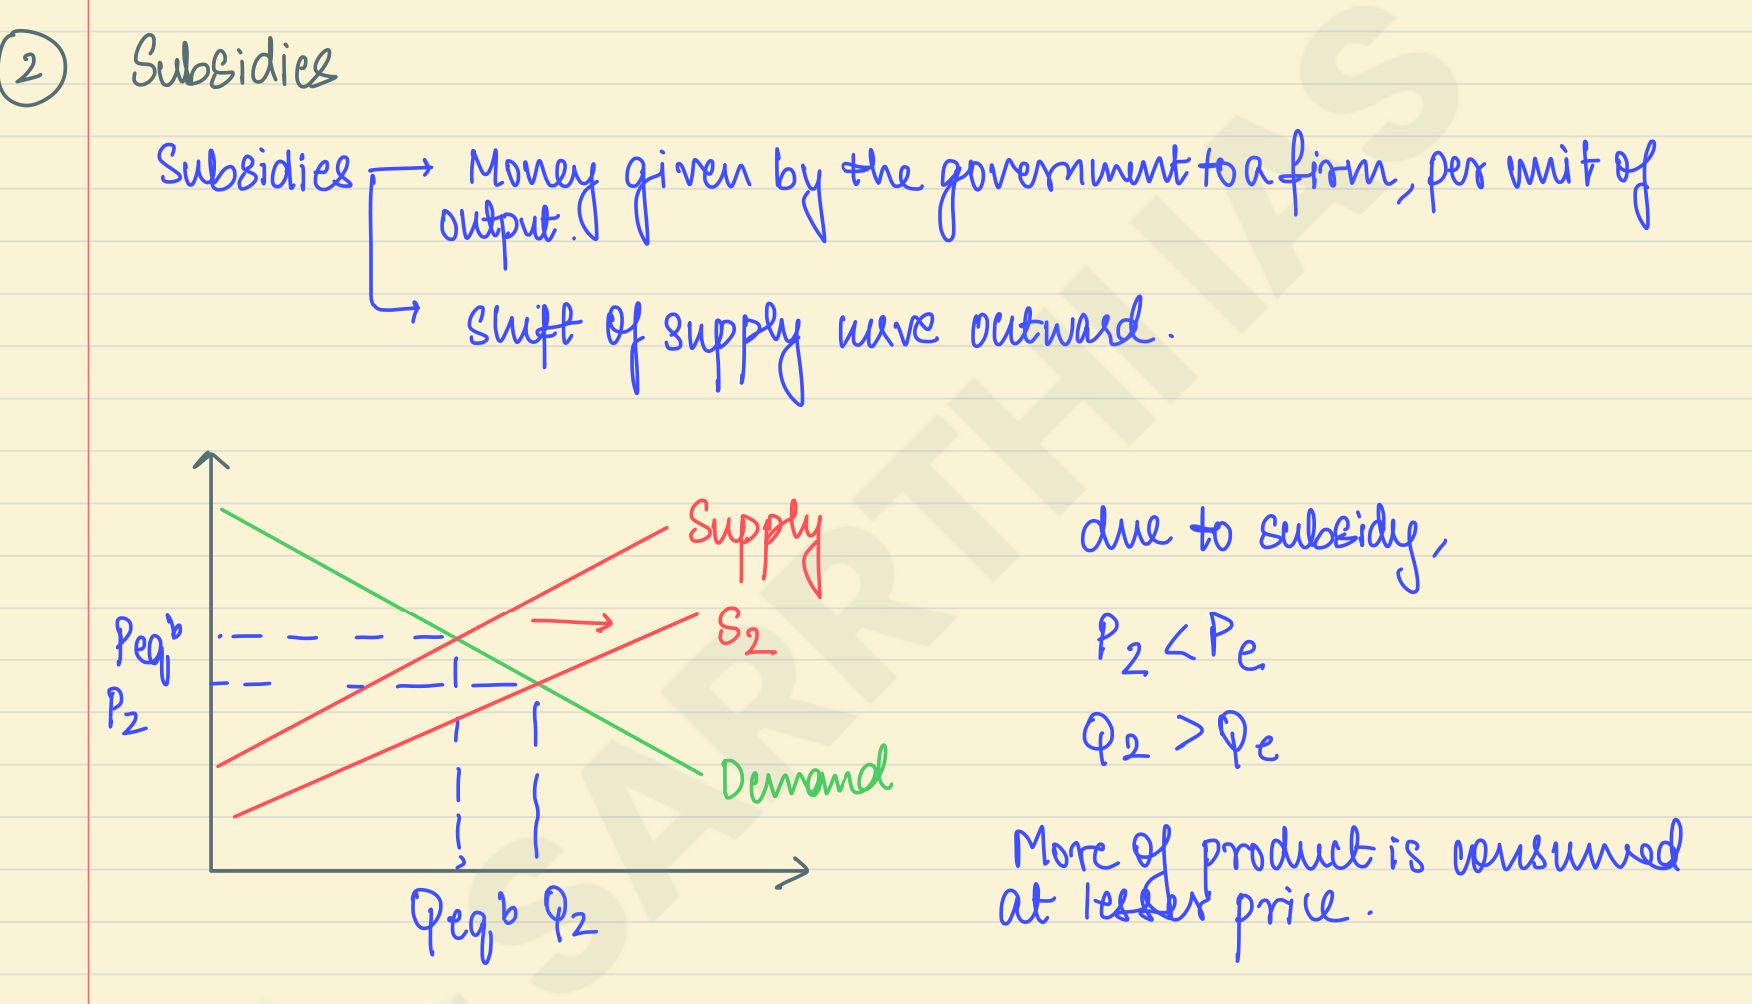 2 Subsidies
Subsidies → Money given by the government to a firm, per unit of
output.
→ shift of supply curve outward.
Supply
S2
Peqb
P2
Demand
Qeqb Q2
due to subsidy,
P2 < Pe
Q2 > Qe
More of product is consumed
at lesser price.
SARRTHI IAS